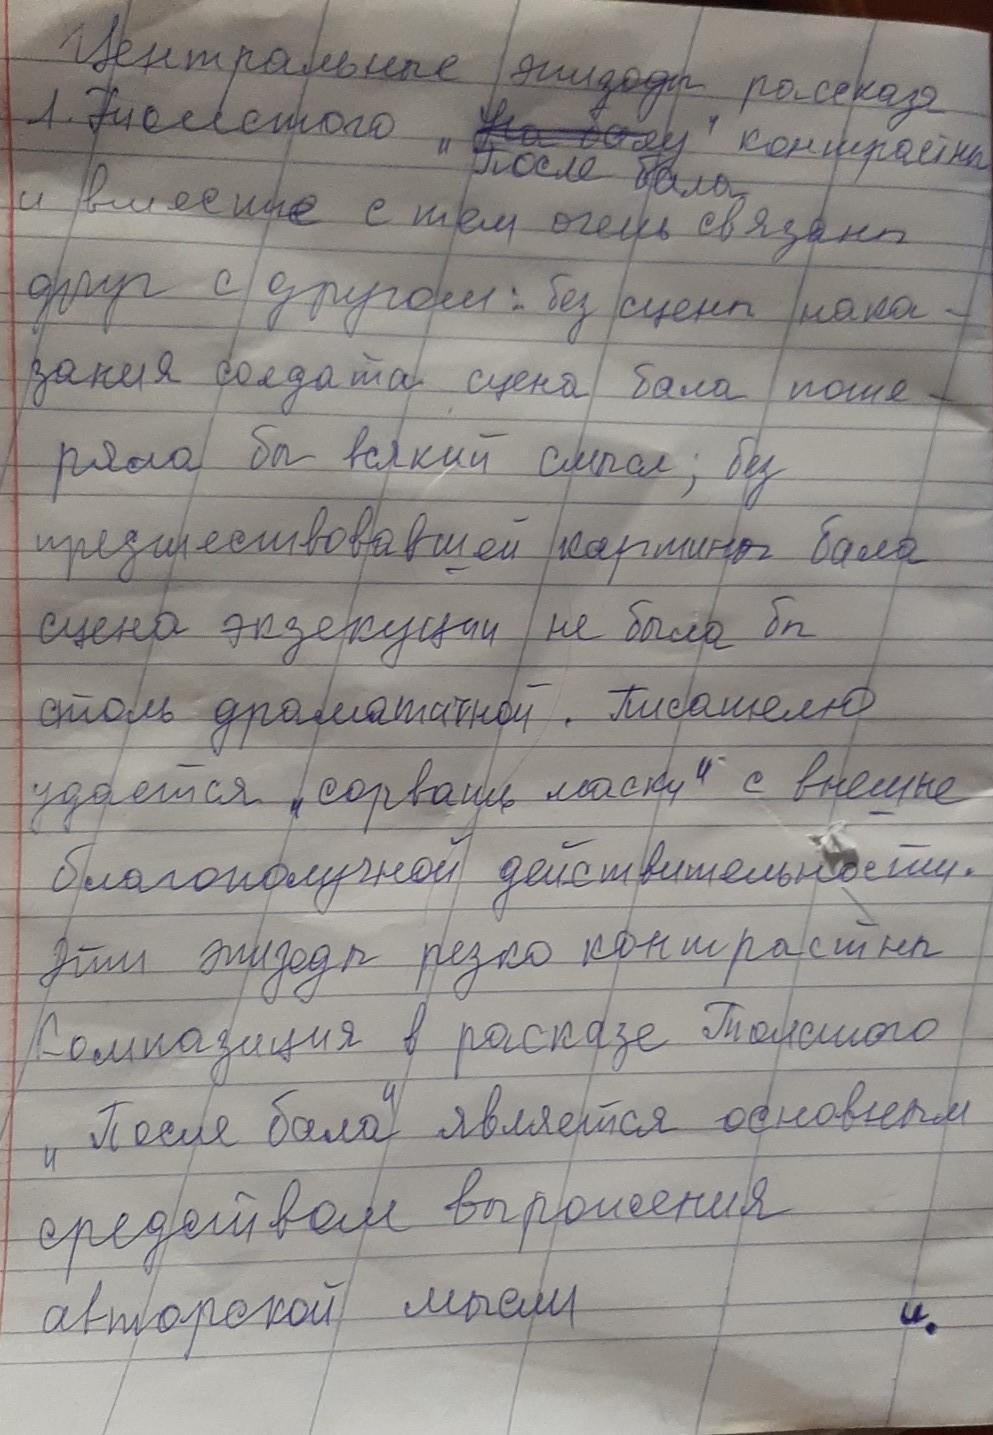 Центральные эпизоды рассказа
Л. Толстого „На балу" контрастны
После бала
и вместе с тем очень связаны
друг с другом: без сцены нака-
зания солдата сцена бала поте-
ряла бы всякий смысл; без
предшествовавшей картины бала
сцена экзекуции не была бы
столь драматичной. Писателю
удаётся „сорвать маску" с внешне
благополучной действительности.
Эти эпизоды резко контрастны
Компазиция в расказе Толстого
„После бала" является основным
средством выражения
авторской мысли и.